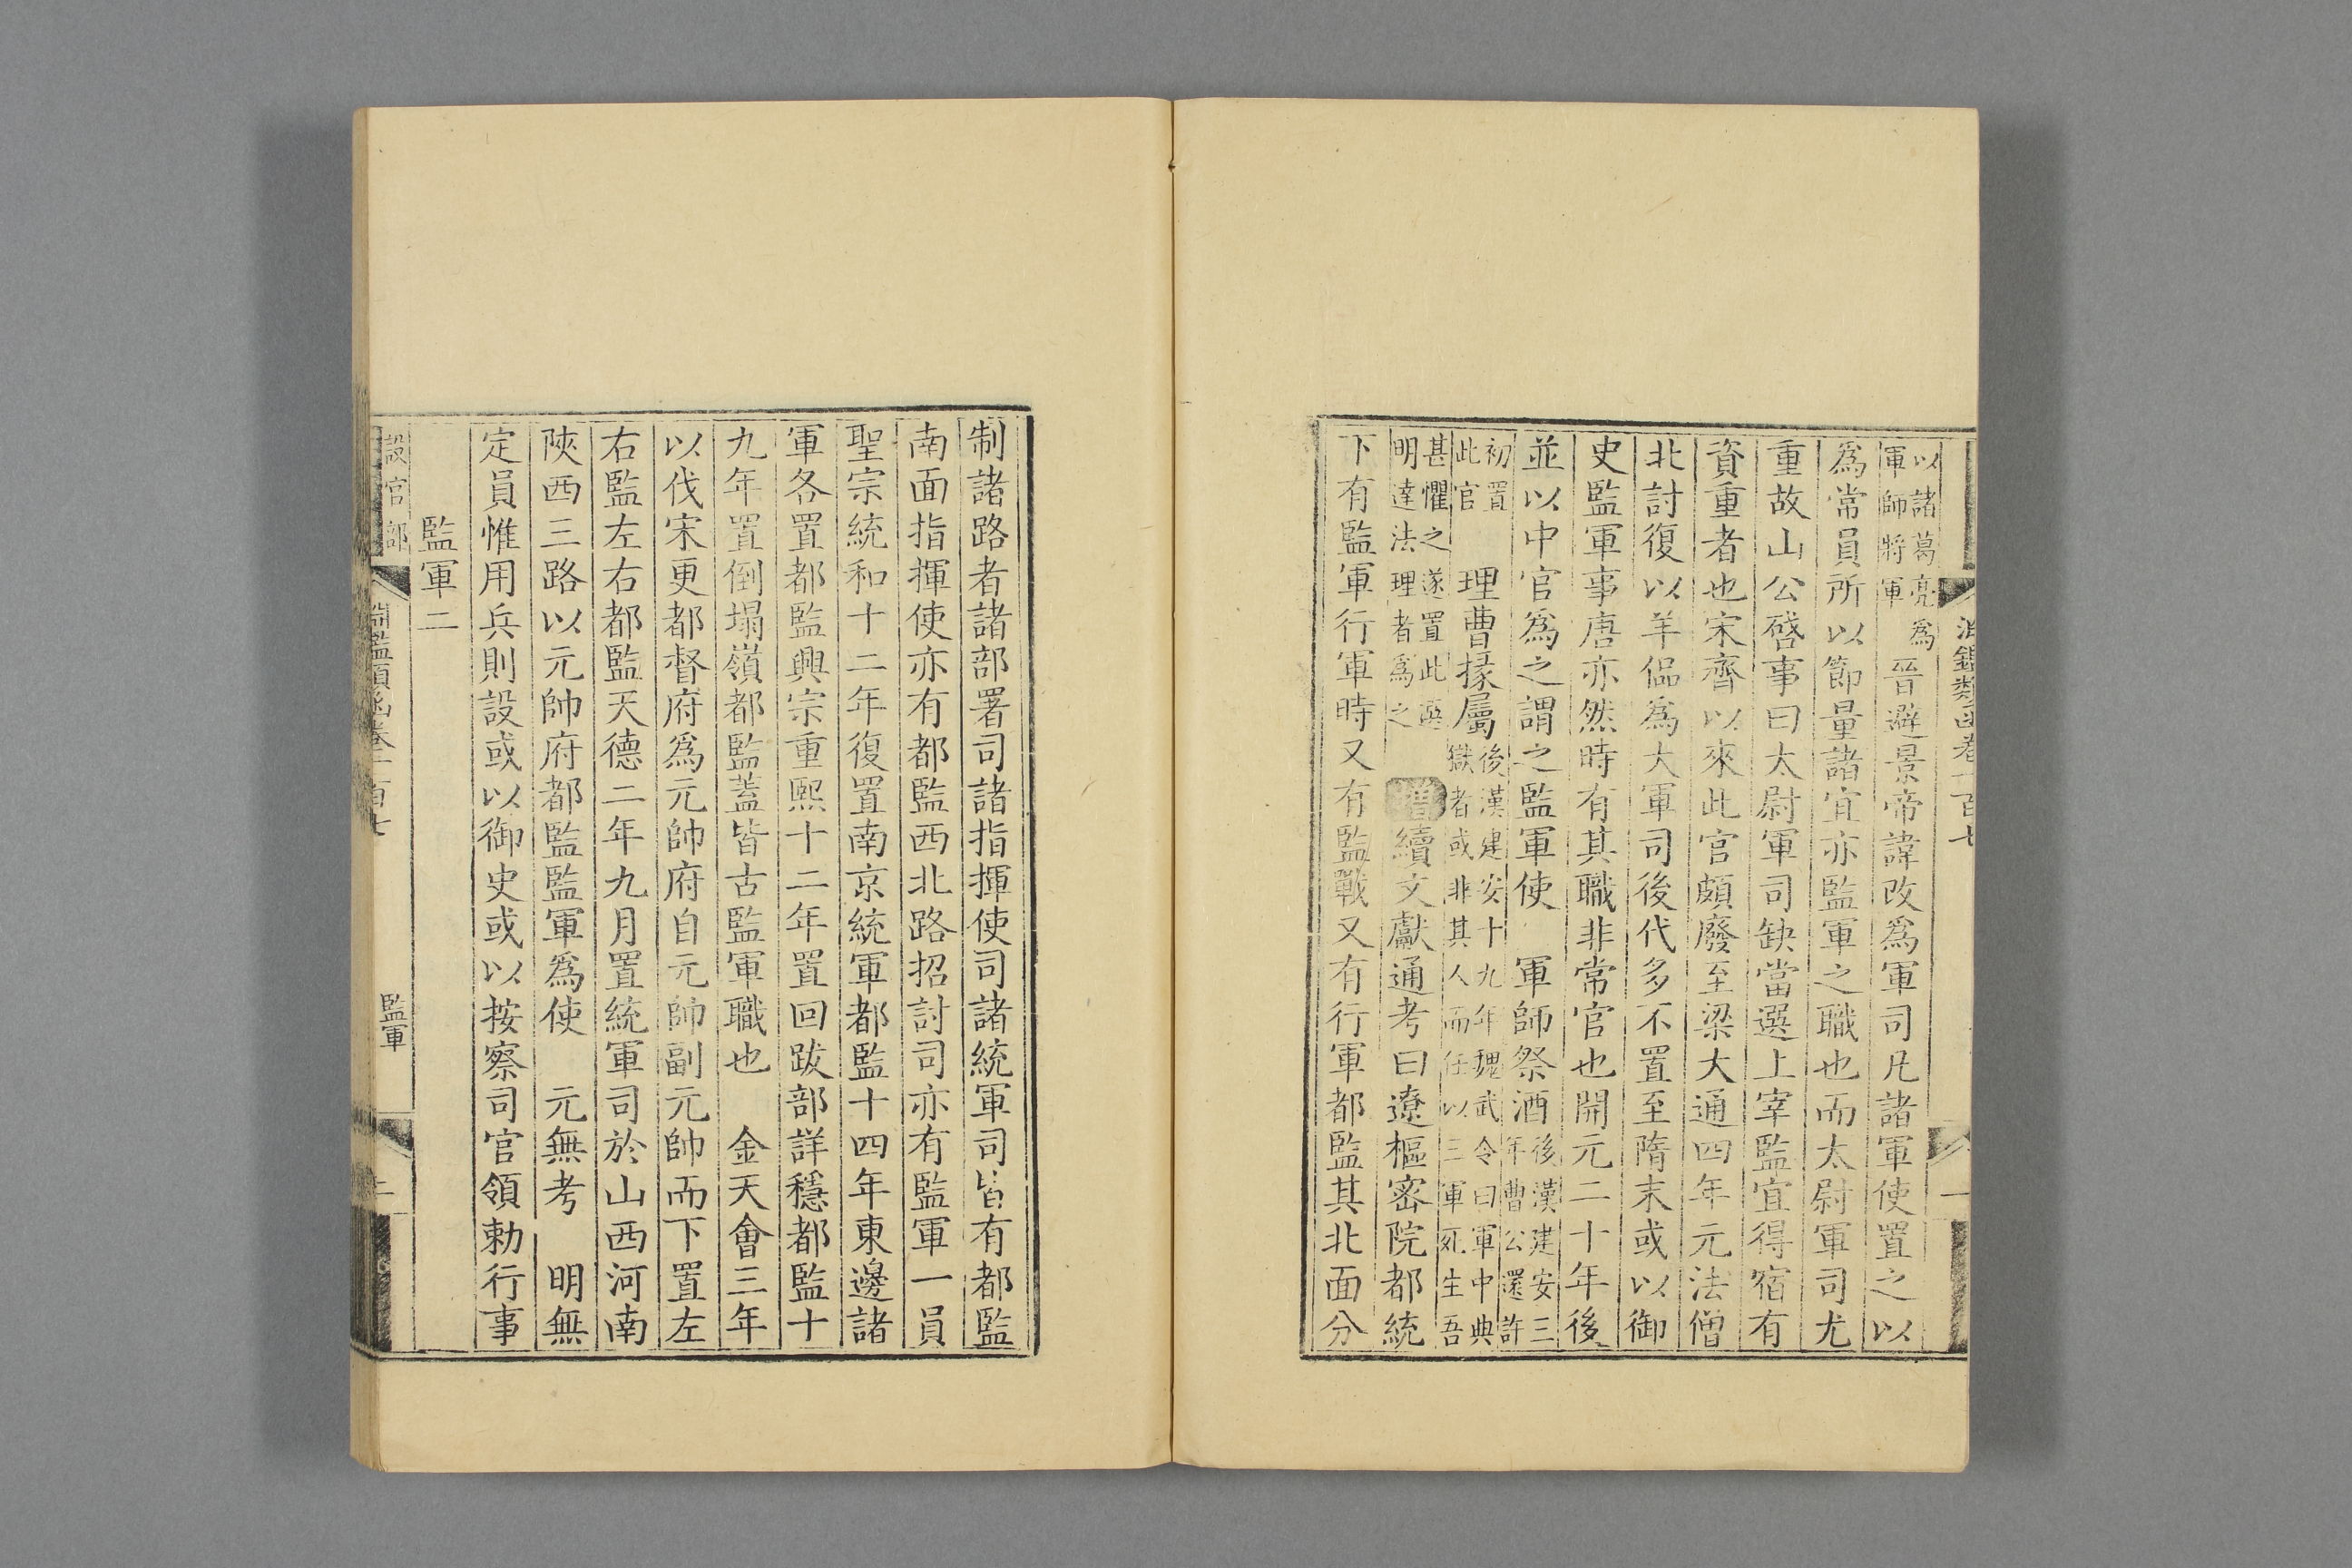 淵鑑類函卷一百七 一
以諸葛亮爲
軍師將軍
晉避景帝諱改爲軍司凡諸軍使置之以
爲常員所以節量諸宜亦監軍之職也而太尉軍司尤
重故山公啓事曰太尉軍司缺當選上宰監宜得宿有
資重者也宋齊以來此官頗廢至梁大通四年元法僧
北討復以羊偘爲大軍司後代多不置至隋末或以御
史監軍事唐亦然時有其職非常官也開元二十年後
並以中官爲之謂之監軍使 軍師祭酒
後漢建安三
年曹公還許
初置
此官
理曹掾屬
後漢建安十九年魏武令曰軍中典
獄者或非其人而任以三軍死生吾
甚懼之遂置此選
明達法理者爲之
增續文獻通考曰遼樞密院都統
下有監軍行軍時又有監戰又有行軍都監其北面分
制諸路者諸部署司諸指揮使司諸統軍司皆有都監
南面指揮使亦有都監西北路招討司亦有監軍一員
聖宗統和十二年復置南京統軍都監十四年東邊諸
軍各置都監興宗重熙十二年置回跋部詳穩都監十
九年置倒塌嶺都監蓋皆古監軍職也 金天會三年
以伐宋更都督府爲元帥府自元帥副元帥而下置左
右監左右都監天德二年九月置統軍司於山西河南
陝西三路以元帥府都監監軍爲使 元無考 明無
定員惟用兵則設或以御史或以按察司官領勅行事
監軍二
設官部
淵鑑類函卷一百七 監軍 二